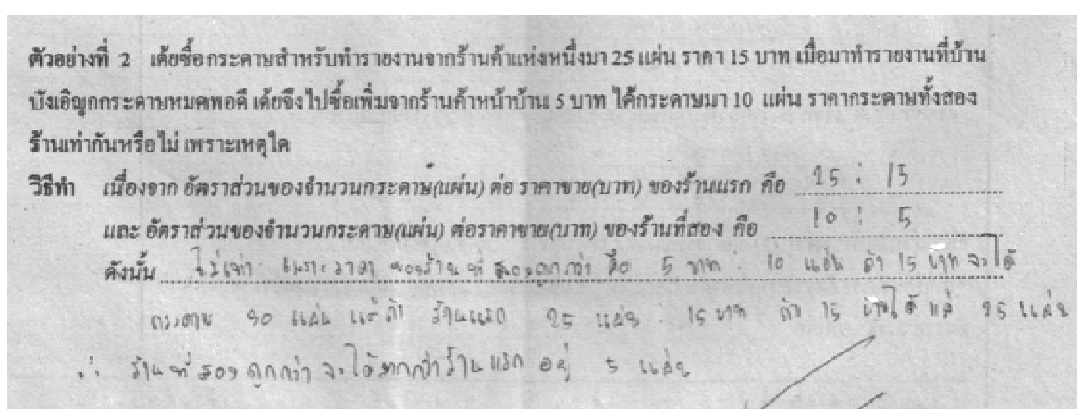 ตัวอย่างที่ 2 เต้ยซื้อกระดาษสำหรับทำรายงานจากร้านค้าแห่งหนึ่งมา 25 แผ่น ราคา 15 บาท เมื่อมาทำรายงานที่บ้าน
บังเอิญกระดาษหมดพอดี เต้ยจึงไปซื้อเพิ่มจากร้านค้าหน้าบ้าน 5 บาท ได้กระดาษมา 10 แผ่น ราคากระดาษทั้งสอง
ร้านเท่ากันหรือไม่ เพราะเหตุใด
วิธีทำ เนื่องจาก อัตราส่วนของจำนวนกระดาษ(แผ่น) ต่อ ราคาขาย(บาท) ของร้านแรก คือ 25 : 15
และ อัตราส่วนของจำนวนกระดาษ(แผ่น) ต่อราคาขาย(บาท) ของร้านที่สอง คือ 10 : 5
ดังนั้น ไม่เท่า เพราะราคา ของร้านที่ สองถูกกว่า คือ 5 บาท : 10 แผ่น ถ้า 15 บาท จะได้
กระดาษ 30 แผ่น แต่ถ้า ร้านแรก 25 แผ่น : 15 บาท ถ้า 15 บาทได้ แค่ 25 แผ่น
∴ ร้านที่ สอง ถูกกว่า จะได้มากกว่าร้านแรก อยู่ 5 แผ่น